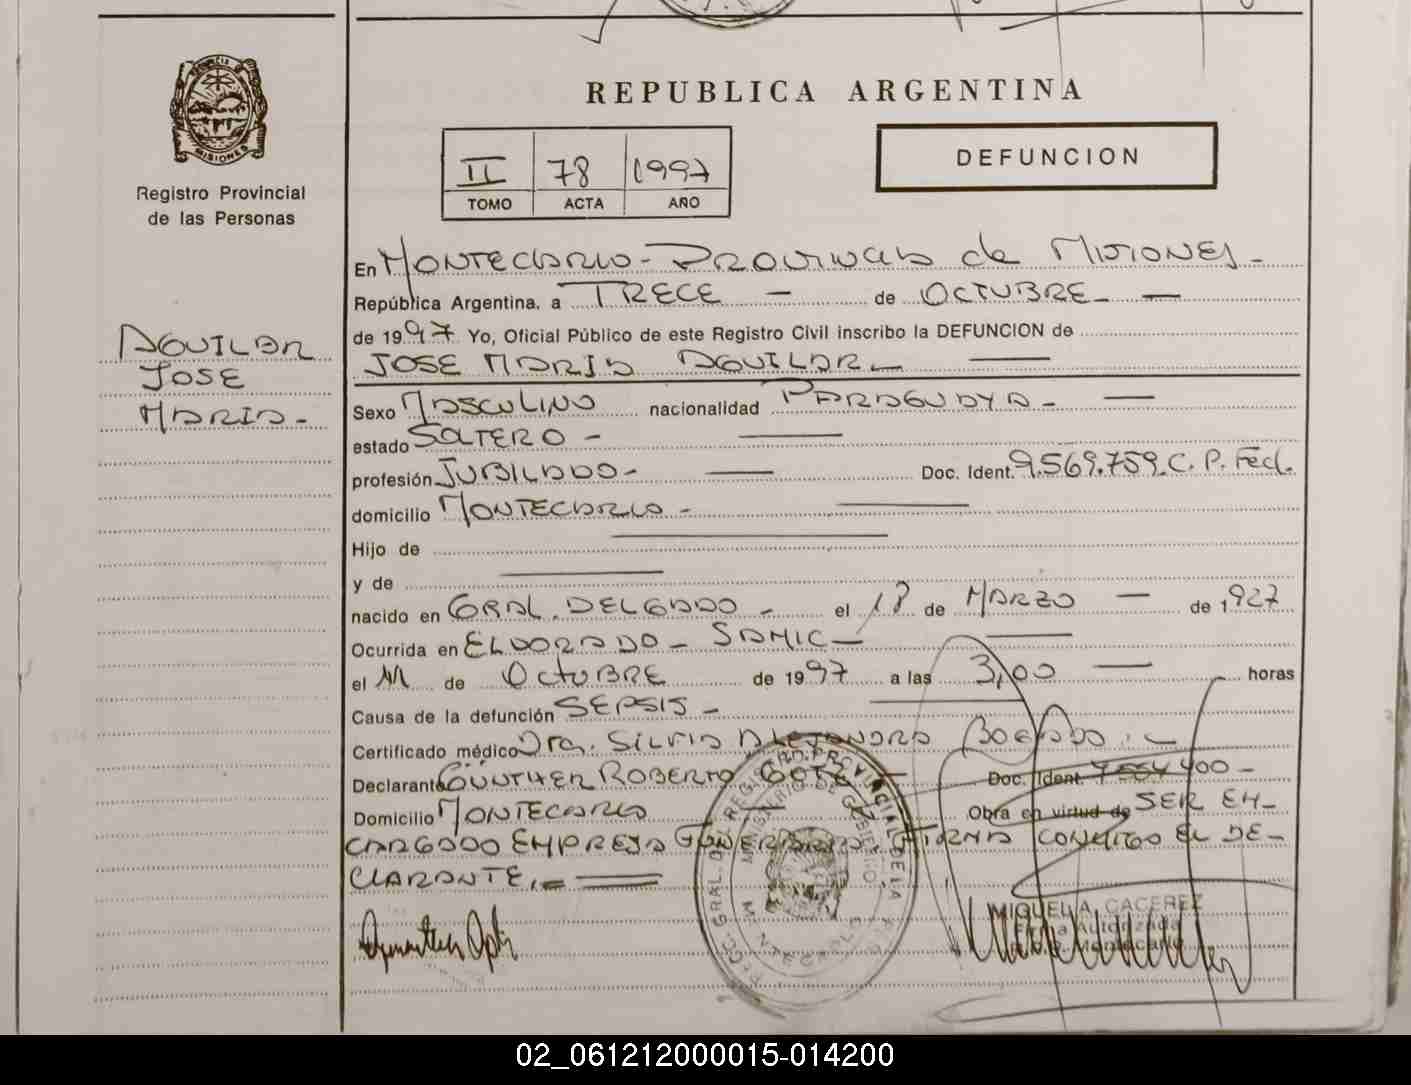 REPUBLICA ARGENTINA
PROVINCIA DE
MISIONES
Registro Provincial
de las Personas
II 78 1997
TOMO ACTA AÑO
DEFUNCION
AGUILAR
JOSE
MARIA-
En MONTECARLO- PROVINCIA de MISIONES-
República Argentina, a TRECE — de OCTUBRE- —
de 1997 Yo, Oficial Público de este Registro Civil inscribo la DEFUNCION de
JOSE MARIA AGUILAR- —
Sexo MASCULINO nacionalidad PARAGUAYA- —
estado SOLTERO- —
profesión JUBILADO- — Doc. Ident. 9.569.759.C.P.Fed.
domicilio MONTECARLO- —
Hijo de —
y de —
nacido en GRAL. DELGADO- el 18 de MARZO — de 1927
Ocurrida en ELDORADO- SAMIC- —
el 11 de OCTUBRE de 1997 a las 3,00 — horas
Causa de la defunción SEPSIS- —
Certificado médico Dra. SILVIA ALEJANDRA BOGADO.-
Declarante GÜNTHER ROBERTO Doc. Ident. 400-
Domicilio MONTECARLO Obra en virtud de SER EN-
CARGADO EMPRESA FUNERARIA FIRMA CONMIGO EL DE-
CLARANTE.- —
MIGUEL A. CACEREZ
Firma Autorizada
Montecarlo
02_061212000015-014200